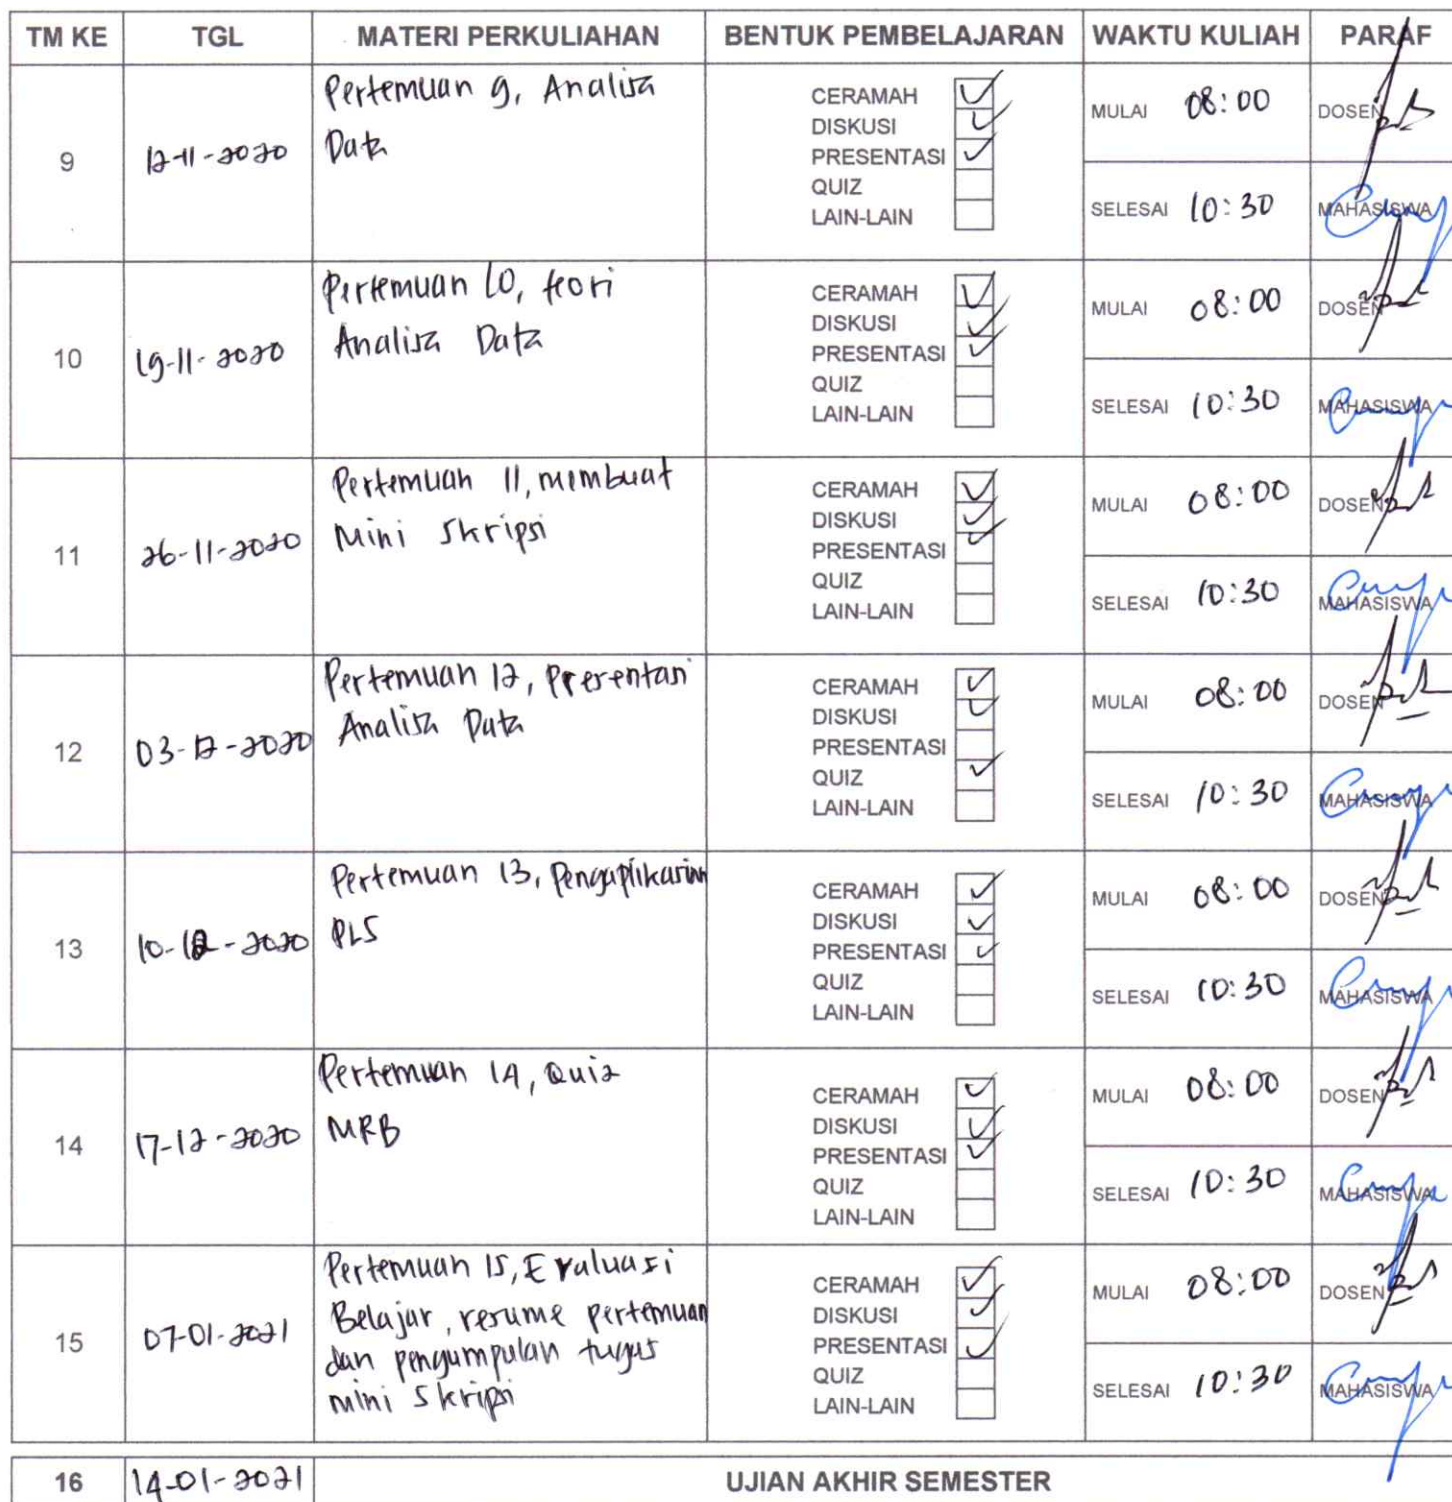 TM KE TGL MATERI PERKULIAHAN BENTUK PEMBELAJARAN WAKTU KULIAH PARAF
9 12-11-2020 Pertemuan 9, Analisa
Data
CERAMAH
DISKUSI
PRESENTASI
QUIZ
LAIN-LAIN
MULAI 08:00 DOSEN
SELESAI 10:30 MAHASISWA
10 19-11-2020 Pertemuan 10, teori
Analisa Data
CERAMAH
DISKUSI
PRESENTASI
QUIZ
LAIN-LAIN
MULAI 08:00 DOSEN
SELESAI 10:30 MAHASISWA
11 26-11-2020 Pertemuan 11, membuat
Mini Skripsi
CERAMAH
DISKUSI
PRESENTASI
QUIZ
LAIN-LAIN
MULAI 08:00 DOSEN
SELESAI 10:30 MAHASISWA
12 03-12-2020 Pertemuan 12, Presentasi
Analisa Data
CERAMAH
DISKUSI
PRESENTASI
QUIZ
LAIN-LAIN
MULAI 08:00 DOSEN
SELESAI 10:30 MAHASISWA
13 10-12-2020 Pertemuan 13, Pengaplikasian
PLS
CERAMAH
DISKUSI
PRESENTASI
QUIZ
LAIN-LAIN
MULAI 08:00 DOSEN
SELESAI 10:30 MAHASISWA
14 17-12-2020 Pertemuan 14, Quiz
MRB
CERAMAH
DISKUSI
PRESENTASI
QUIZ
LAIN-LAIN
MULAI 08:00 DOSEN
SELESAI 10:30 MAHASISWA
15 07-01-2021 Pertemuan 15, Evaluasi
Belajar, resume pertemuan
dan pengumpulan tugas
mini skripsi
CERAMAH
DISKUSI
PRESENTASI
QUIZ
LAIN-LAIN
MULAI 08:00 DOSEN
SELESAI 10:30 MAHASISWA
16 14-01-2021 UJIAN AKHIR SEMESTER